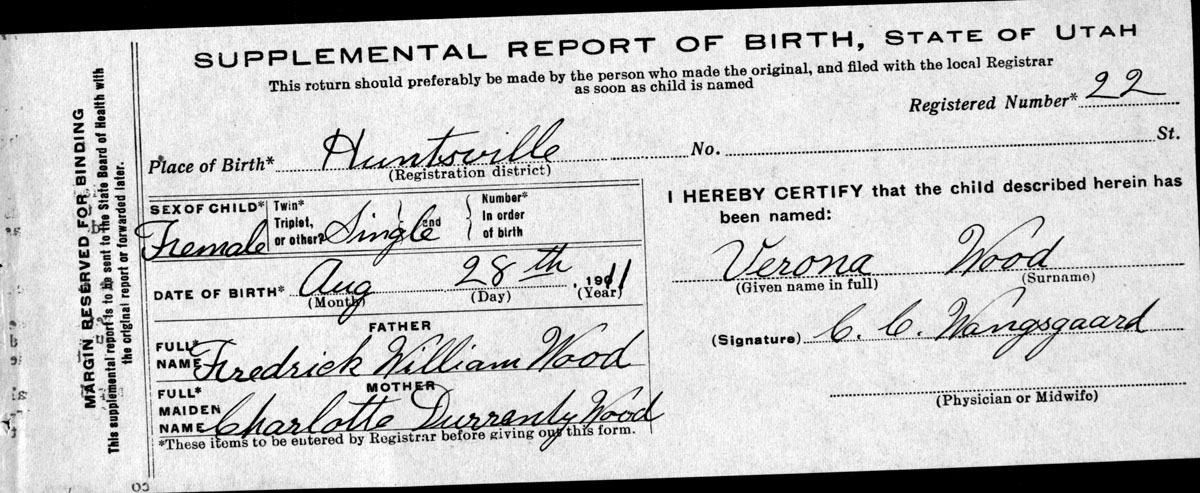 SUPPLEMENTAL REPORT OF BIRTH, STATE OF UTAH
This return should preferably be made by the person who made the original, and filed with the local Registrar
as soon as child is named
Registered Number* 22
Place of Birth* Huntsville No. St.
(Registration district)
SEX OF CHILD* Female
Twin* Triplet, or other? Single and
Number* In order of birth
DATE OF BIRTH* Aug 28th, 1911
(Month) (Day) (Year)
FATHER
FULL* NAME Fredrick William Wood
MOTHER
FULL* MAIDEN NAME Charlotte Wood
*These items to be entered by Registrar before giving out this form.
I HEREBY CERTIFY that the child described herein has
been named:
Verona Wood
(Given name in full) (Surname)
(Signature) C. C. Wangsgaard
(Physician or Midwife)
MARGIN RESERVED FOR BINDING
This supplemental report is to be sent to the State Board of Health with
the original report or forwarded later.